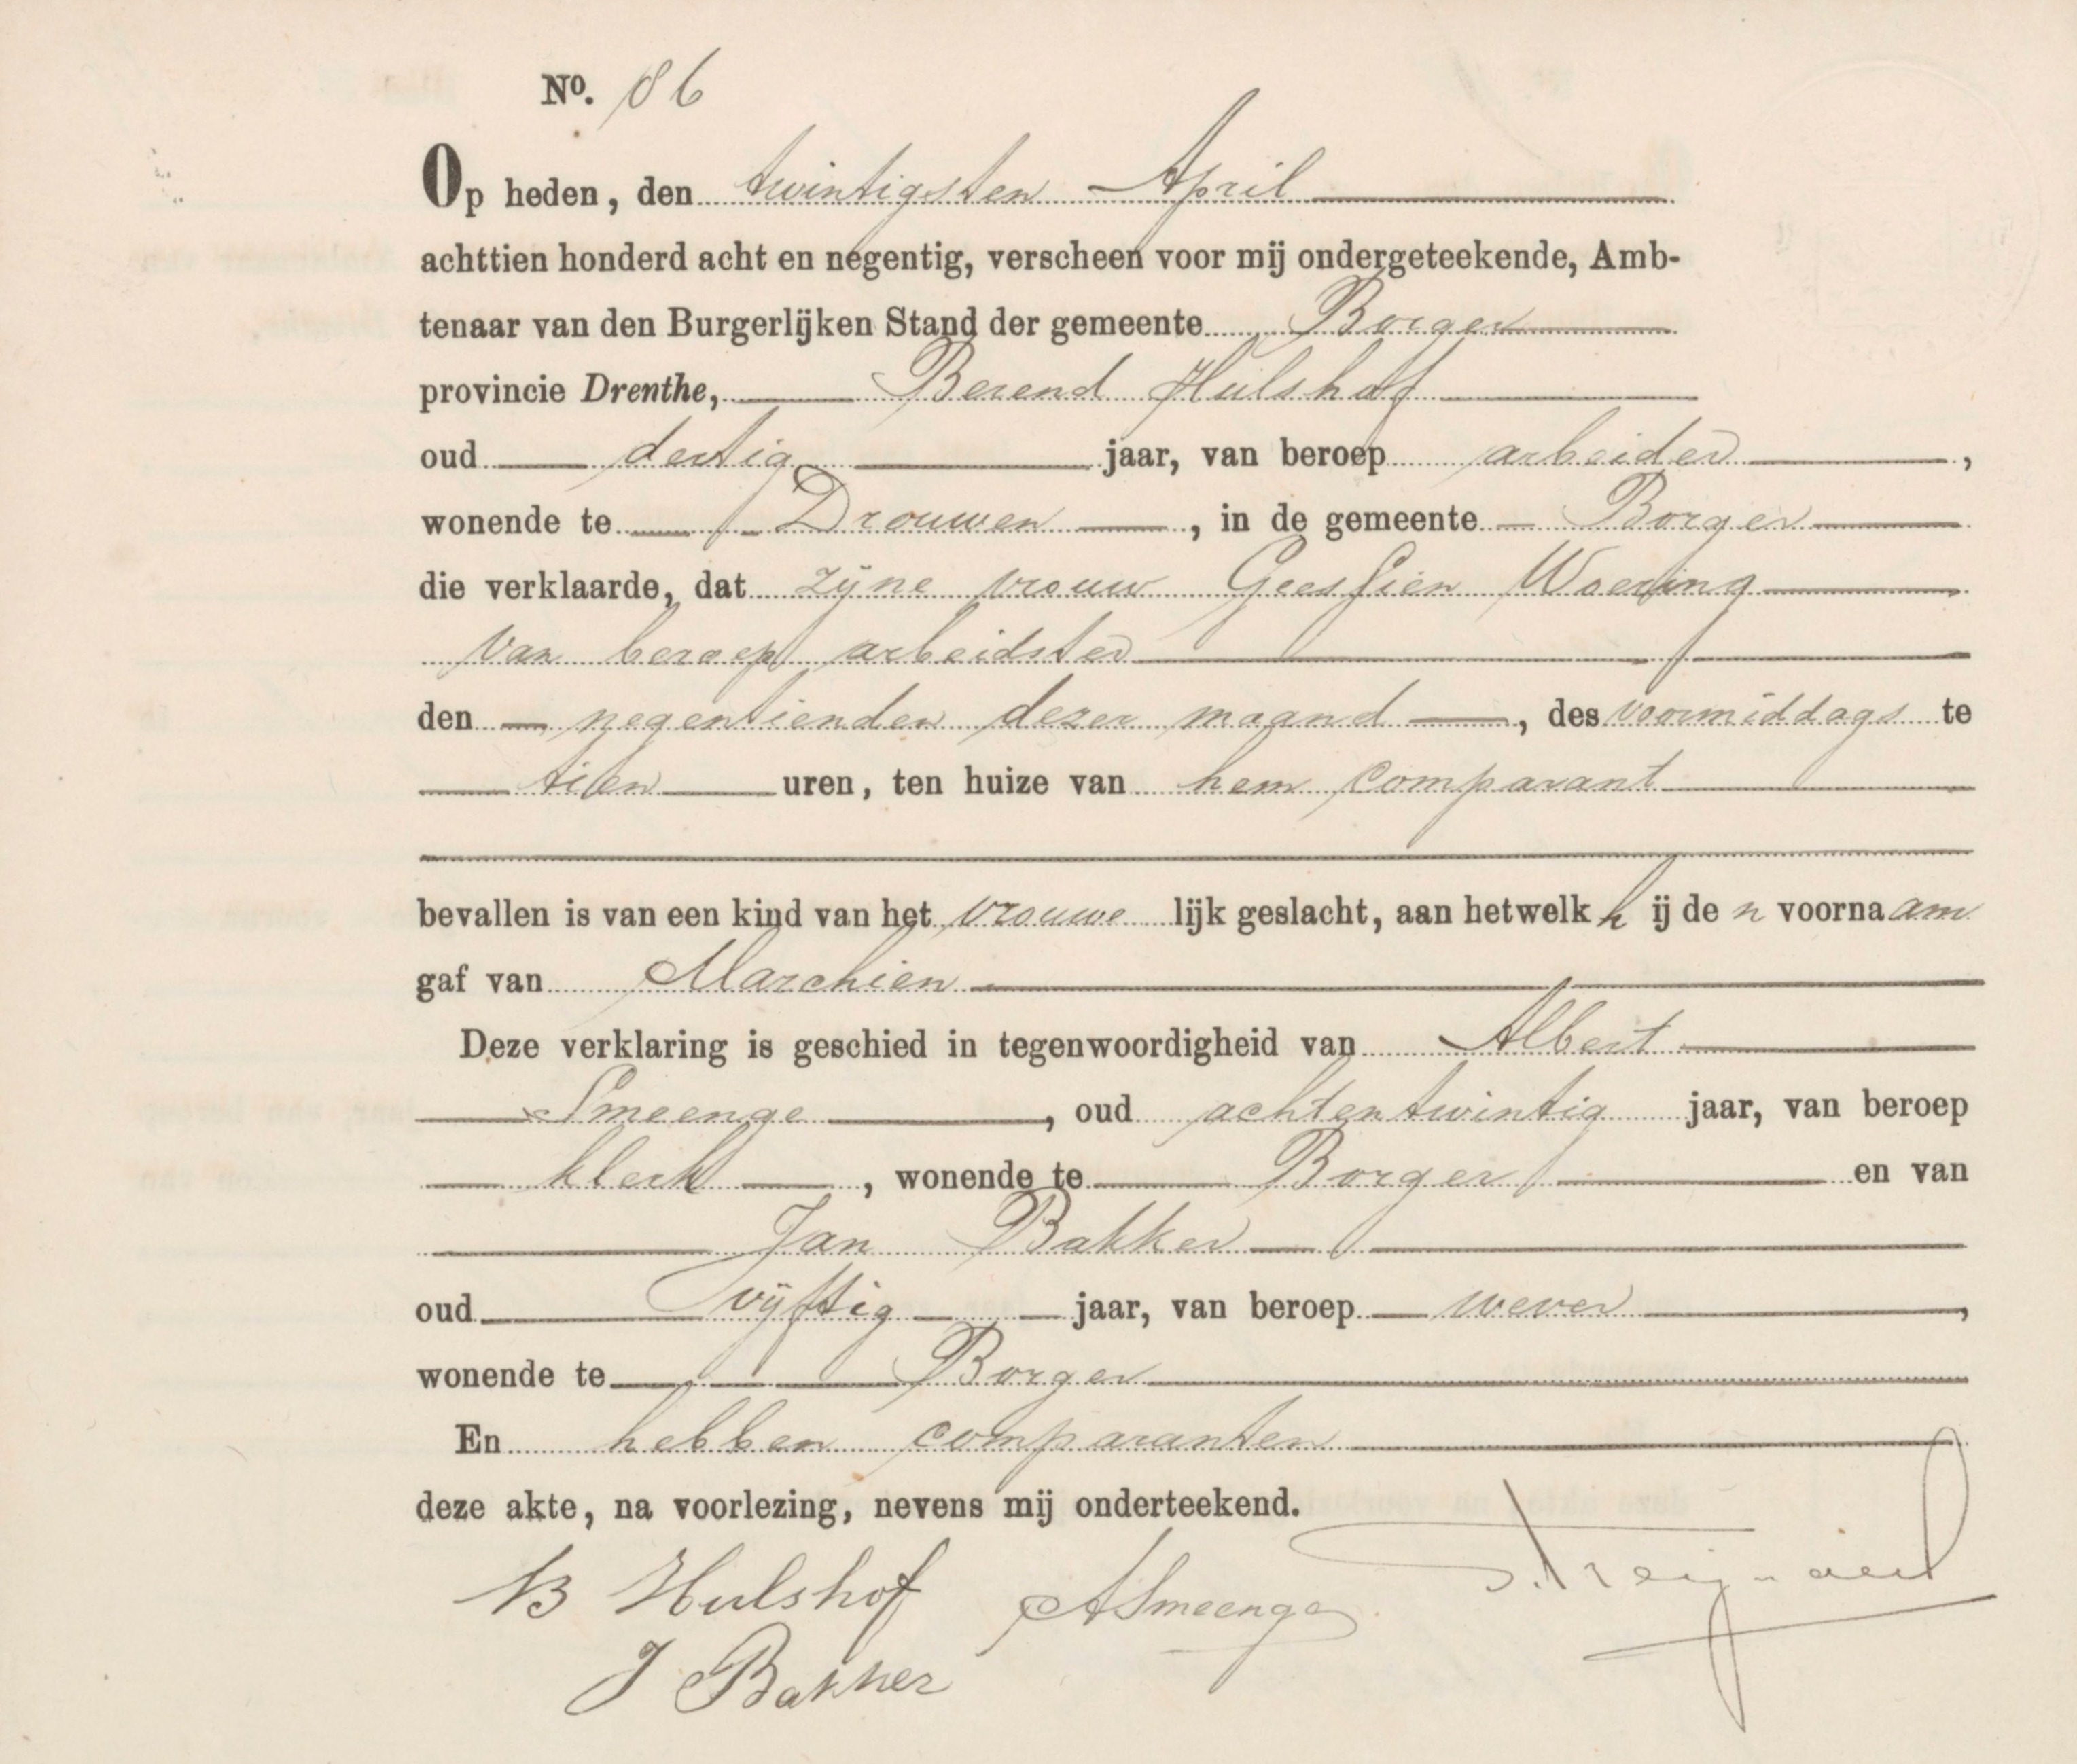 No. 86
Op heden, den twintigsten April
achttien honderd acht en negentig, verscheen voor mij ondergeteekende, Amb-
tenaar van den Burgerlijken Stand der gemeente Borger
provincie Drenthe, Berend Hulshof
oud dertig jaar, van beroep arbeider,
wonende te Drouwen, in de gemeente Borger
die verklaarde, dat zijne vrouw Geessien Woering
van beroep arbeidster
den negentienden dezer maand, des voormiddags te
tien uren, ten huize van hem comparant
bevallen is van een kind van het vrouwelijk geslacht, aan hetwelk hij den voornaam
gaf van Marchien
Deze verklaring is geschied in tegenwoordigheid van Albert
Smeenge, oud achtentwintig jaar, van beroep
klerk, wonende te Borger en van
Jan Bakker
oud vijftig jaar, van beroep wever,
wonende te Borger
En hebben comparanten
deze akte, na voorlezing, nevens mij onderteekend.
B Hulshof ASmeenge
J Bakker